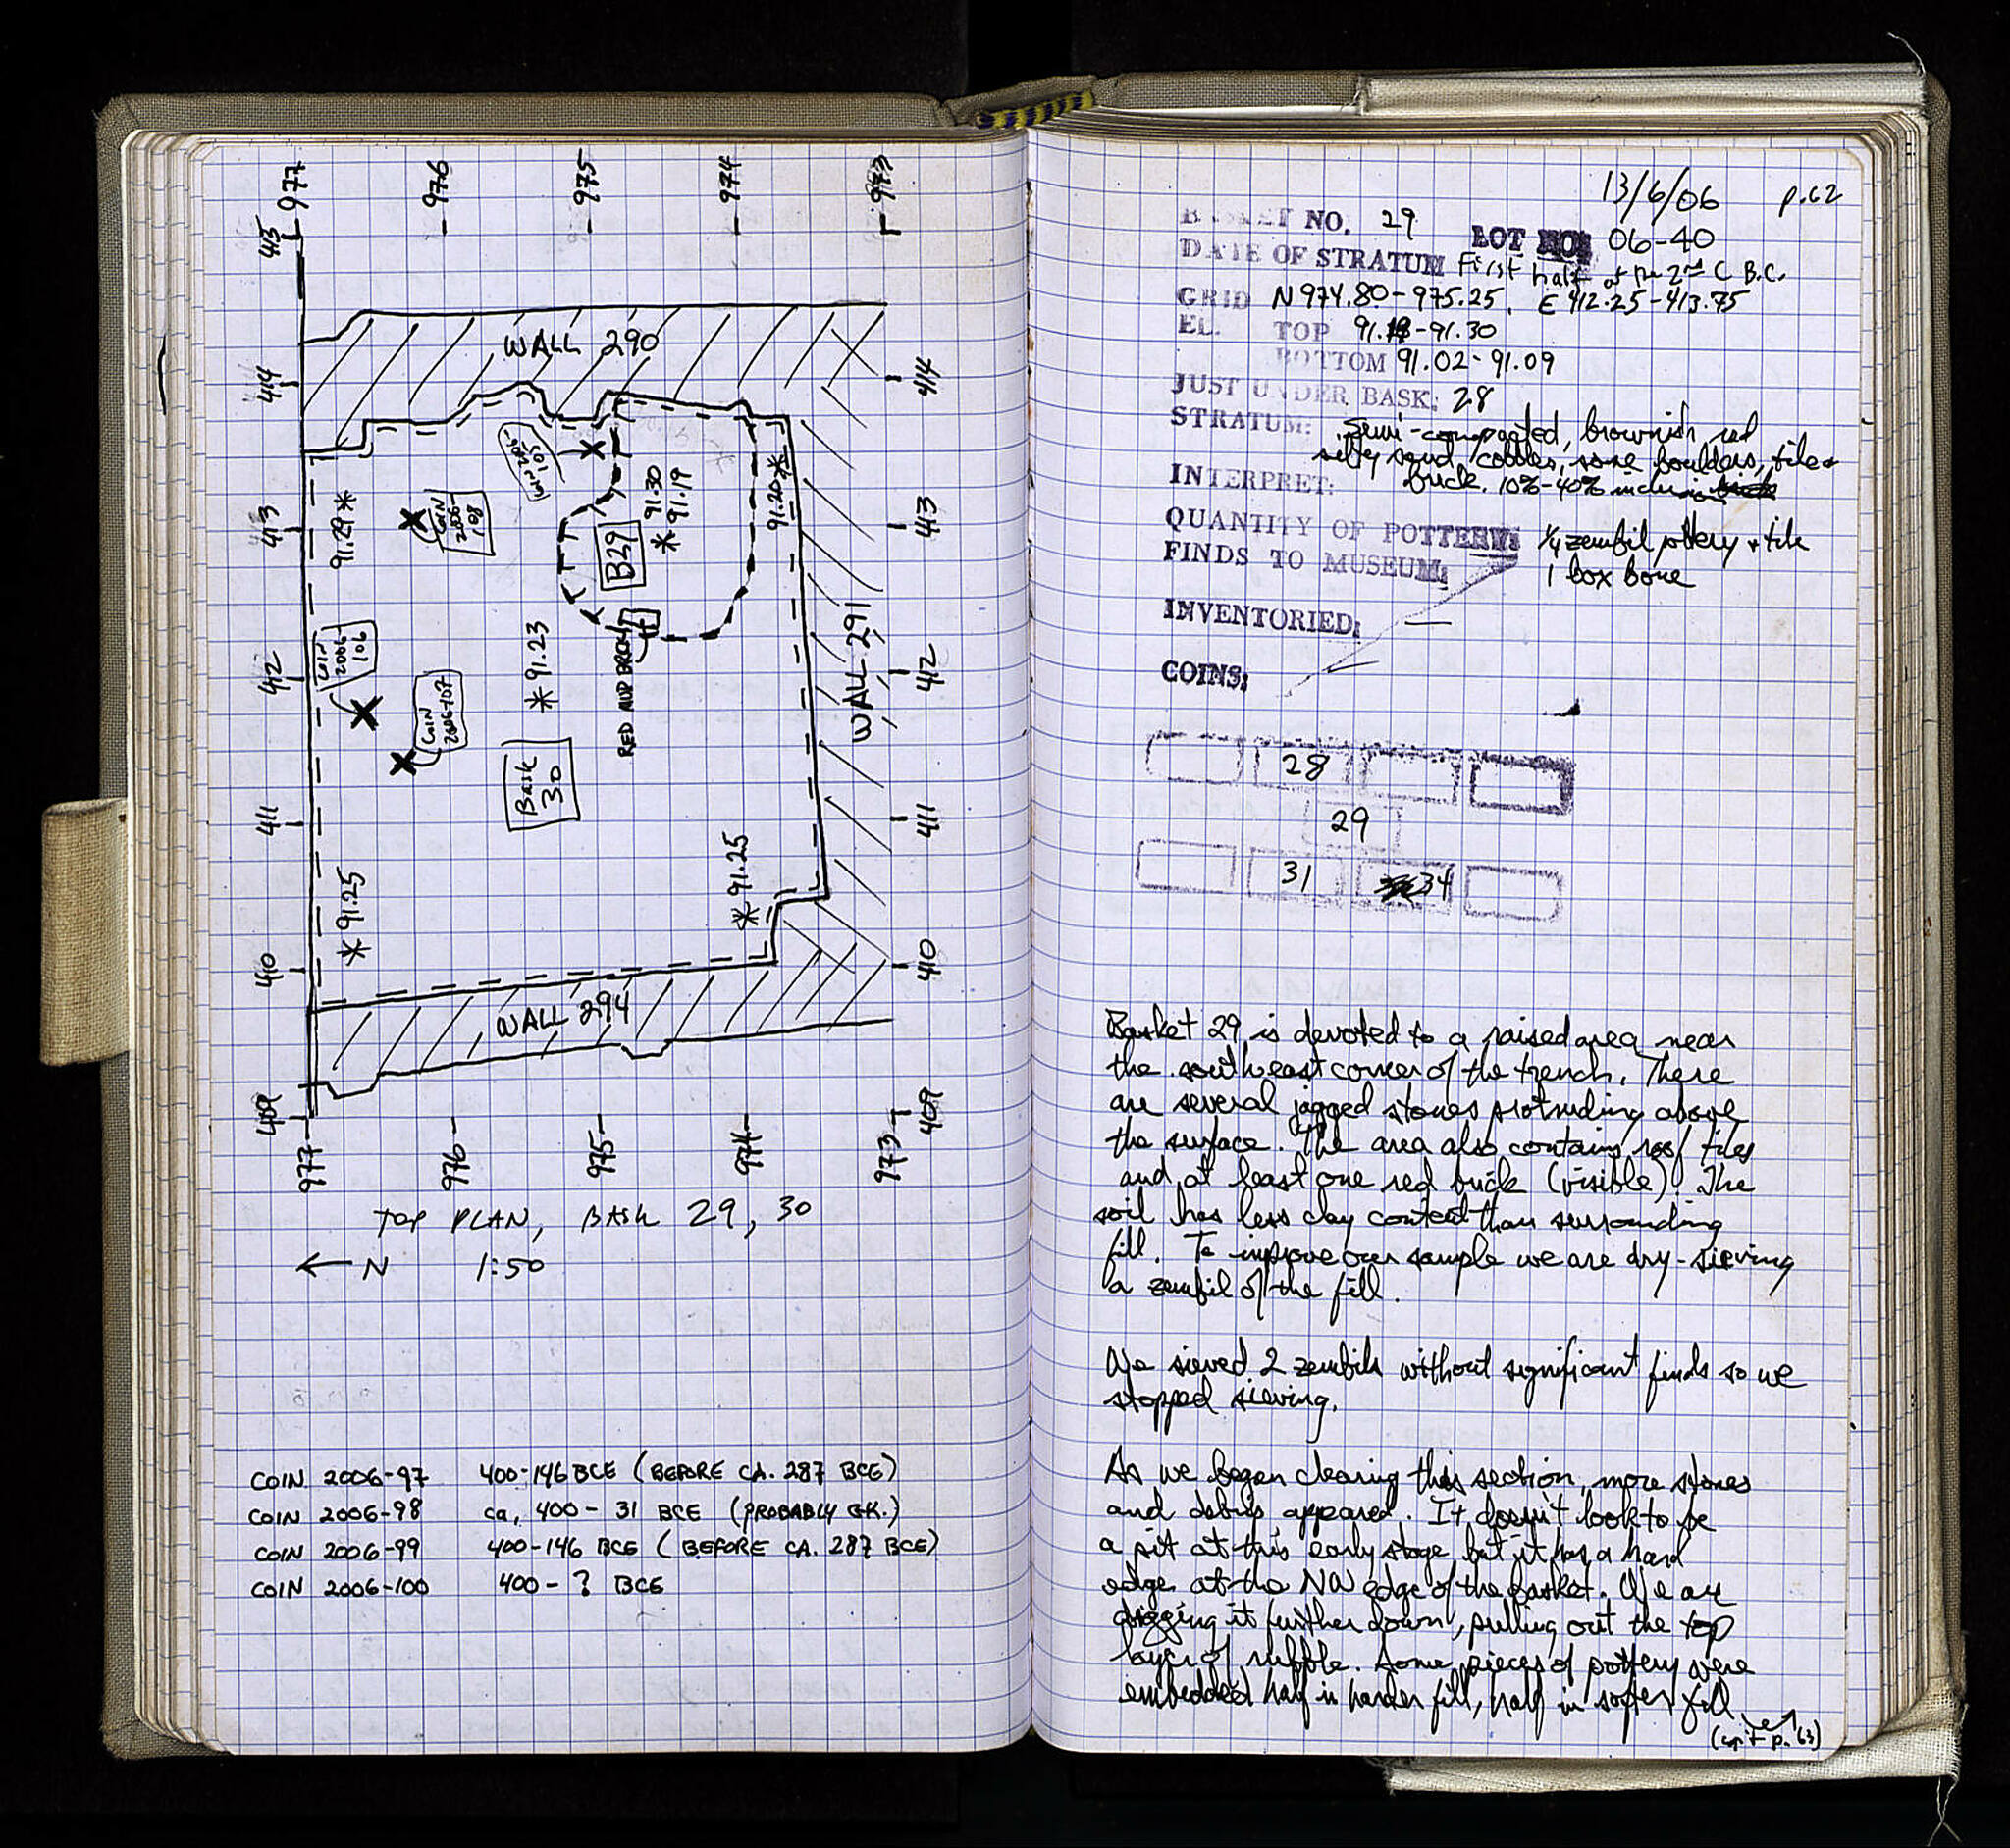 977
- 976
- 975
- 974
973
415
WALL 290
414
414
COIN 2006-
105
91.30
91.19
91.20
COIN
2006-
108
413
91.29
B29
413
COIN
2006-
106
91.23
RED AND BROWN
WALL 291
412
412
COIN
2006-107
Bask
30
411
411
91.25
91.25
410
410
WALL 294
409
409
977
976 -
975-
974-
973
TOP PLAN, BASK 29, 30
← N 1:50
COIN 2006-97 400-146 BCE (BEFORE CA. 287 BCE)
COIN 2006-98 ca, 400 - 31 BCE (PROBABLY GK.)
COIN 2006-99 400-146 BCE (BEFORE CA. 287 BCE)
COIN 2006-100 400 - ? BCE
13/6/06 p.62
BASKET NO. 29 LOT NO: 06-40
DATE OF STRATUM First half of the 2nd C B.C.
GRID N 974.80-975.25, E 412.25-413.75
EL. TOP 91.19-91.30
BOTTOM 91.02-91.09
JUST UNDER BASK: 28
STRATUM: Semi-compacted, brownish red
silty sand, cobbles, some boulders, tile +
INTERPRET: brick. 10%-40% inclusion
QUANTITY OF POTTERY: 1/4 zembil pottery + tile
FINDS TO MUSEUM: 1 box bone
INVENTORIED: —
COINS: —
28
29
31 34
Basket 29 is devoted to a raised area near
the southeast corner of the trench. There
are several jagged stones protruding above
the surface. The area also contains roof tiles
and at least one red brick (visible). The
soil has less clay content than surrounding
fill. To improve our sample we are dry-sieving
a zembil of the fill.
We sieved 2 zembils without significant finds so we
stopped sieving.
As we began clearing this section, more stones
and debris appeared. It doesn't look to be
a pit at this early stage, but it has a hard
edge at the NW edge of the basket. We are
digging it further down, pulling out the top
layer of rubble. Some pieces of pottery were
embedded half in harder fill, half in softer fill.
p. 63)